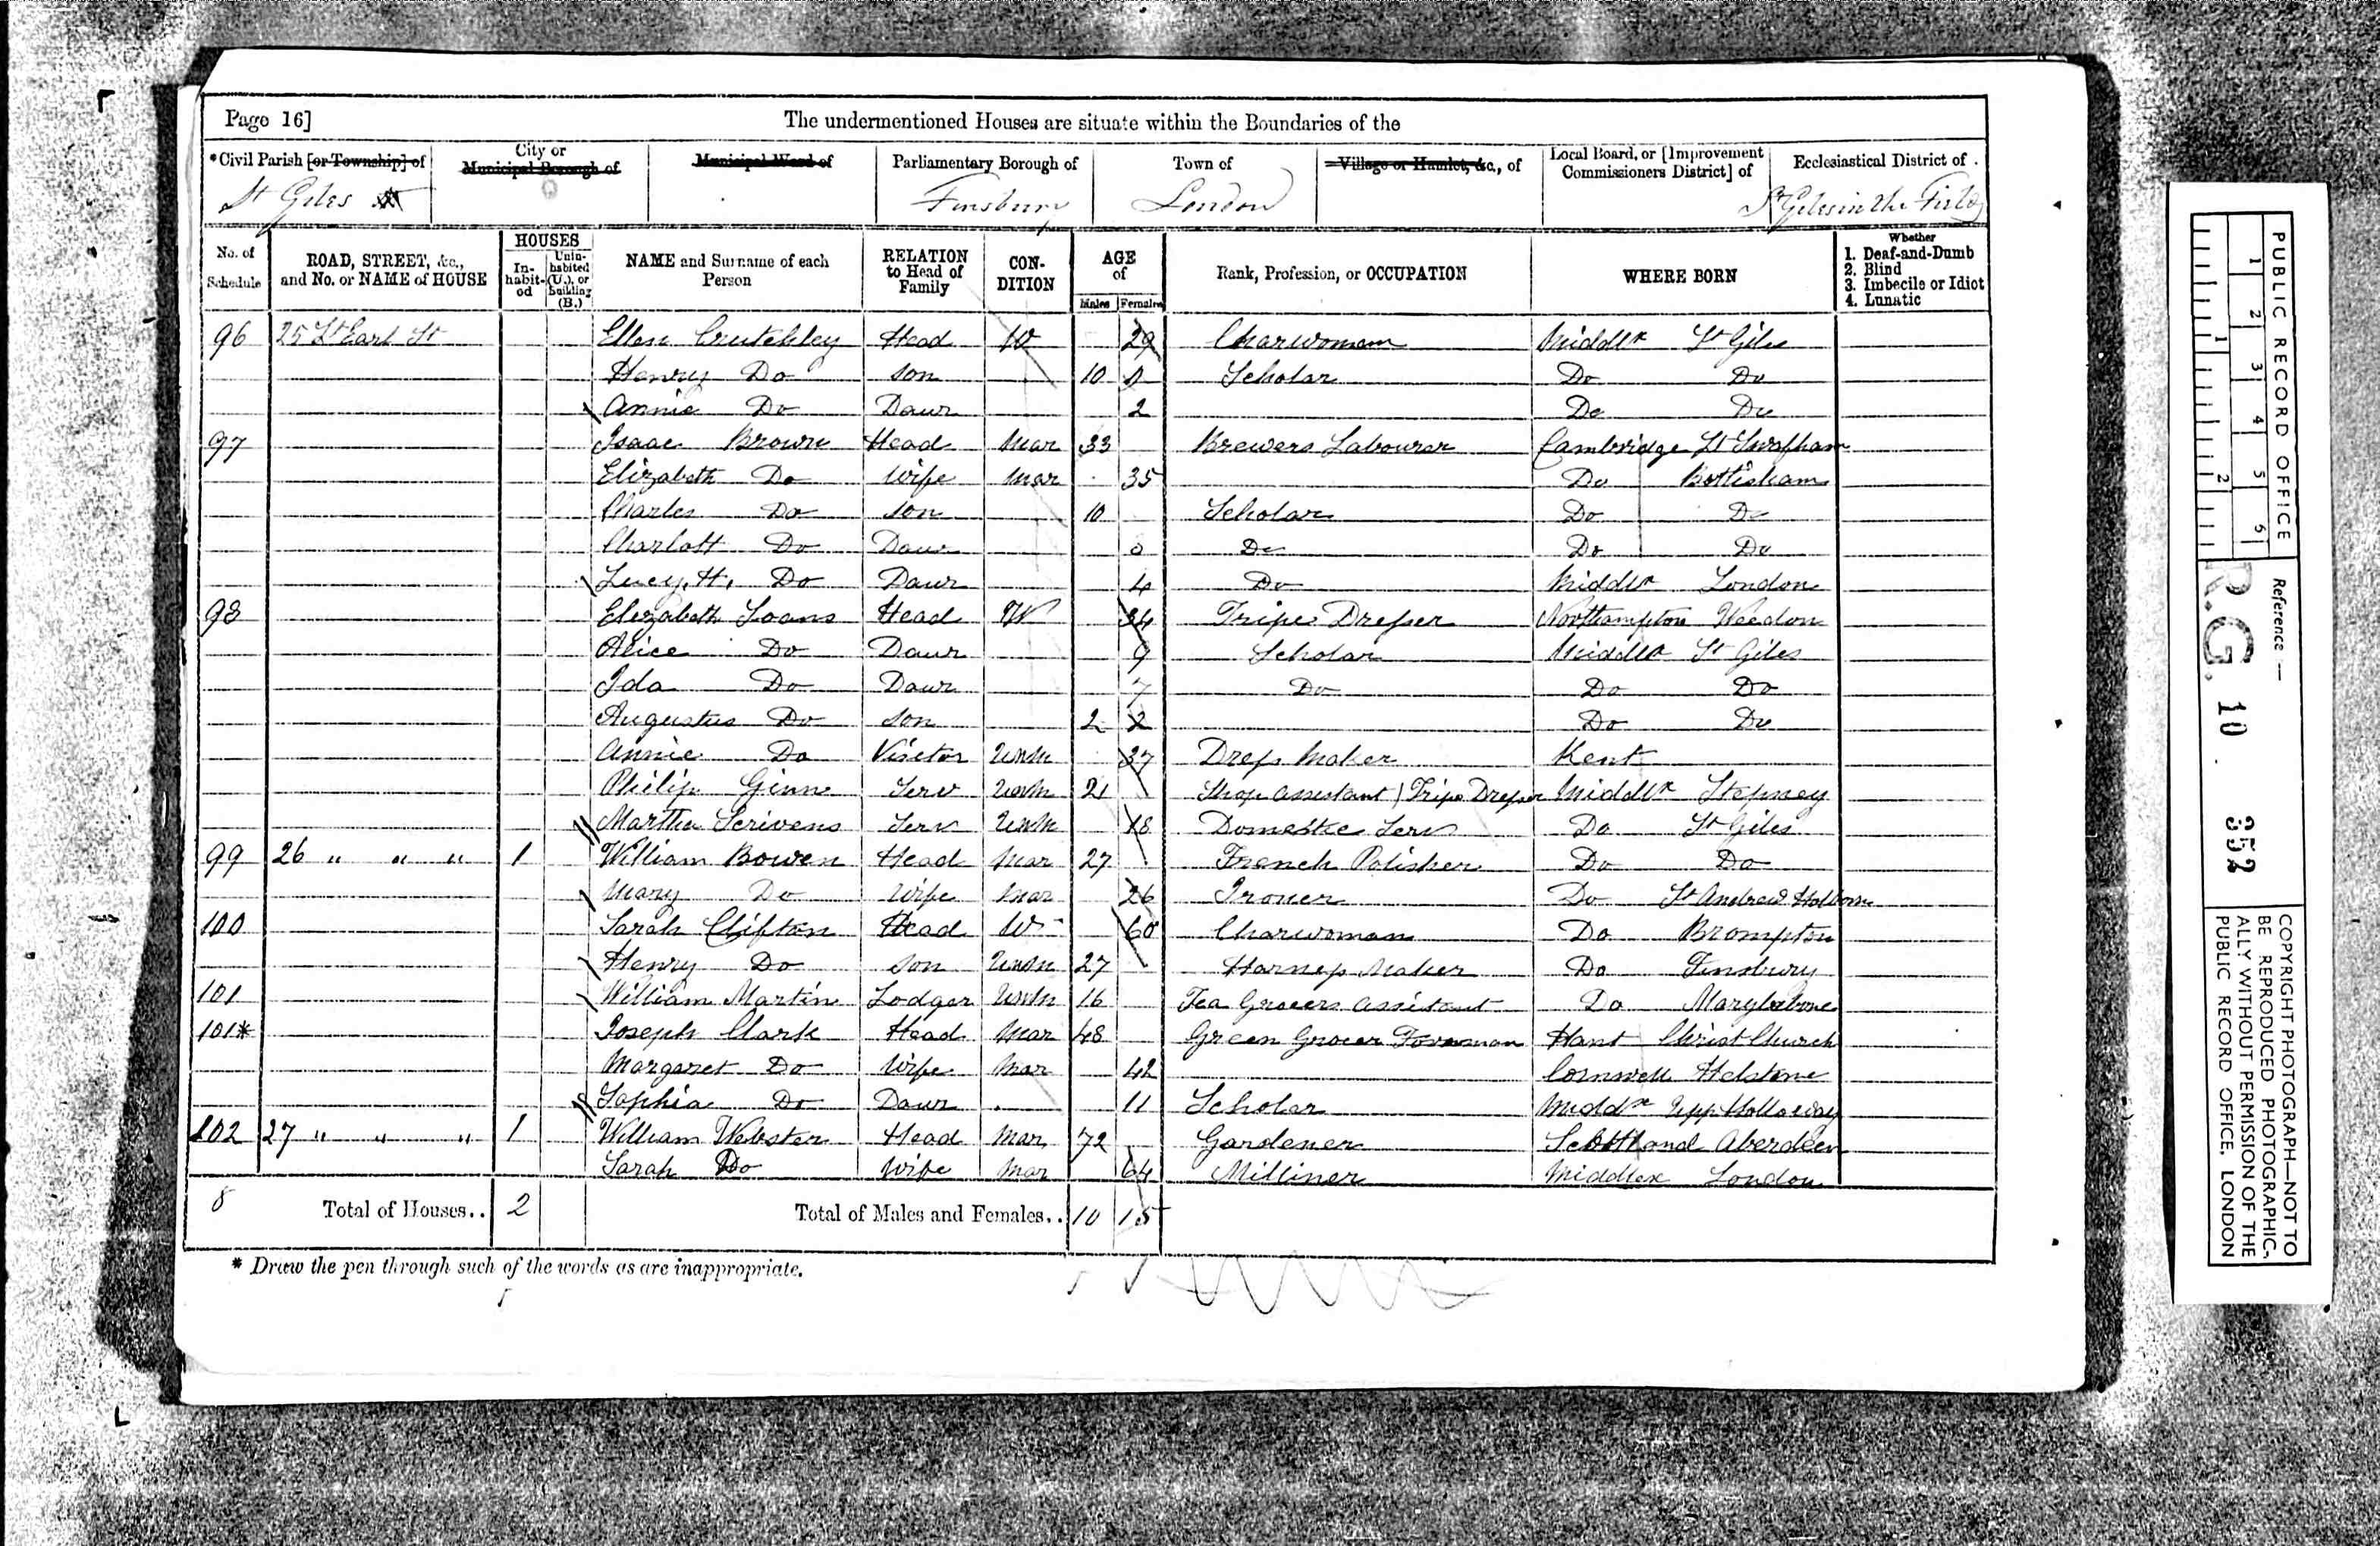 Page 16]
The undermentioned Houses are situate within the Boundaries of the
*Civil Parish [or Township] of
City or Municipal Borough of
Municipal Ward of
Parliamentary Borough of
Town of
Village or Hamlet, &c., of
Local Board, or [Improvement Commissioners District] of
Ecclesiastical District of
St Giles
Finsbury
London
St Giles in the Fields
No. of Schedule
ROAD, STREET, &c., and No. or NAME of HOUSE
HOUSES
In-habit-ed
Unin-habited (U.), or Building (B.)
NAME and Surname of each Person
RELATION to Head of Family
CON-DITION
AGE of
Males
Females
Rank, Profession, or OCCUPATION
WHERE BORN
Whether
1. Deaf-and-Dumb
2. Blind
3. Imbecile or Idiot
4. Lunatic
96 25 Lt Earl St Ellen Crutchley Head W 29 Charwoman Middlx St Giles
Henry Do Son 10 Scholar Do Do
Annie Do Daur 2 Do Do
97 Isaac Brown Head Mar 33 Brewers Labourer Cambridge
Elizabeth Do Wife Mar 35 Do Bottisham
Charles Do Son 10 Scholar Do Do
Charlott Do Daur Do Do Do
Lucy. H. Do Daur 4 Do Middlx London
98 Elizabeth Loans Head W 34 Tripe Dresser Northampton Weedon
Alice Do Daur 9 Scholar Middlx St Giles
Ida Do Daur 7 Do Do Do
Augustus Do Son 2 2 Do Do
Annie Do Visitor Unm 37 Dress Maker Kent
Philip Ginn Serv Unm 21 Shop Assistant / Tripe Dresser Middlx Stepney
Martha Scrivens Serv Unm 18 Domestic Serv Do St Giles
99 26 " " " 1 William Bowen Head Mar 27 French Polisher Do Do
Mary Do Wife Mar 26 Ironer Do St Andrew Holborn
100 Sarah Clifton Head W 60 Charwoman Do Brompton
Henry Do Son Unm 27 Harness Maker Do Finsbury
101 William Martin Lodger Unm 16 Tea Grocers Assistant Do Marylebone
101* Joseph Clark Head Mar 48 Green Grocer Foreman Hant Christ Church
Margaret Do Wife Mar 42 Cornwell Helstone
Sophia Do Daur 11 Scholar Middx Upp Holloway
102 27 " " " 1 William Webster Head Mar 72 Gardener Scottland Aberdeen
Sarah Do Wife Mar 64 Milliner Middlex London
8 Total of Houses.. 2 Total of Males and Females.. 10 15
* Draw the pen through such of the words as are inappropriate.
PUBLIC RECORD OFFICE
1 2 3 4 5 6
1 2
Reference :—
R.G. 10 352
COPYRIGHT PHOTOGRAPH—NOT TO BE REPRODUCED PHOTOGRAPHIC-ALLY WITHOUT PERMISSION OF THE PUBLIC RECORD OFFICE, LONDON